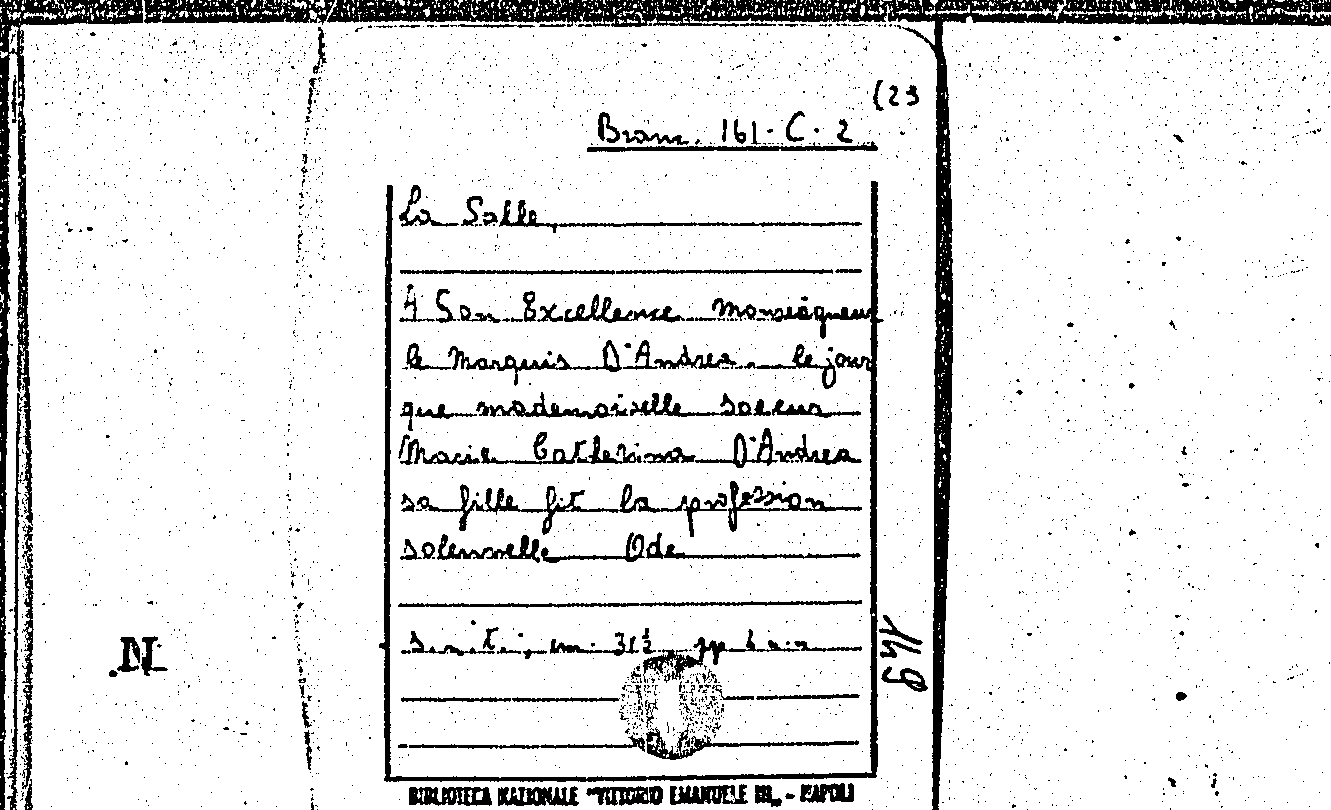 (23
Branc. 161. C. 2
La Salle,
A Son Excellence Monseigneur
le Marquis D'Andrea. le jour
que mademoiselle soeur
Marie Catherina D'Andrea
sa fille fit la profession
solennelle Ode
s.n.t.; cm. 31½ pp
N
BIBLIOTECA NAZIONALE "VITTORIO EMANUELE III„ - NAPOLI